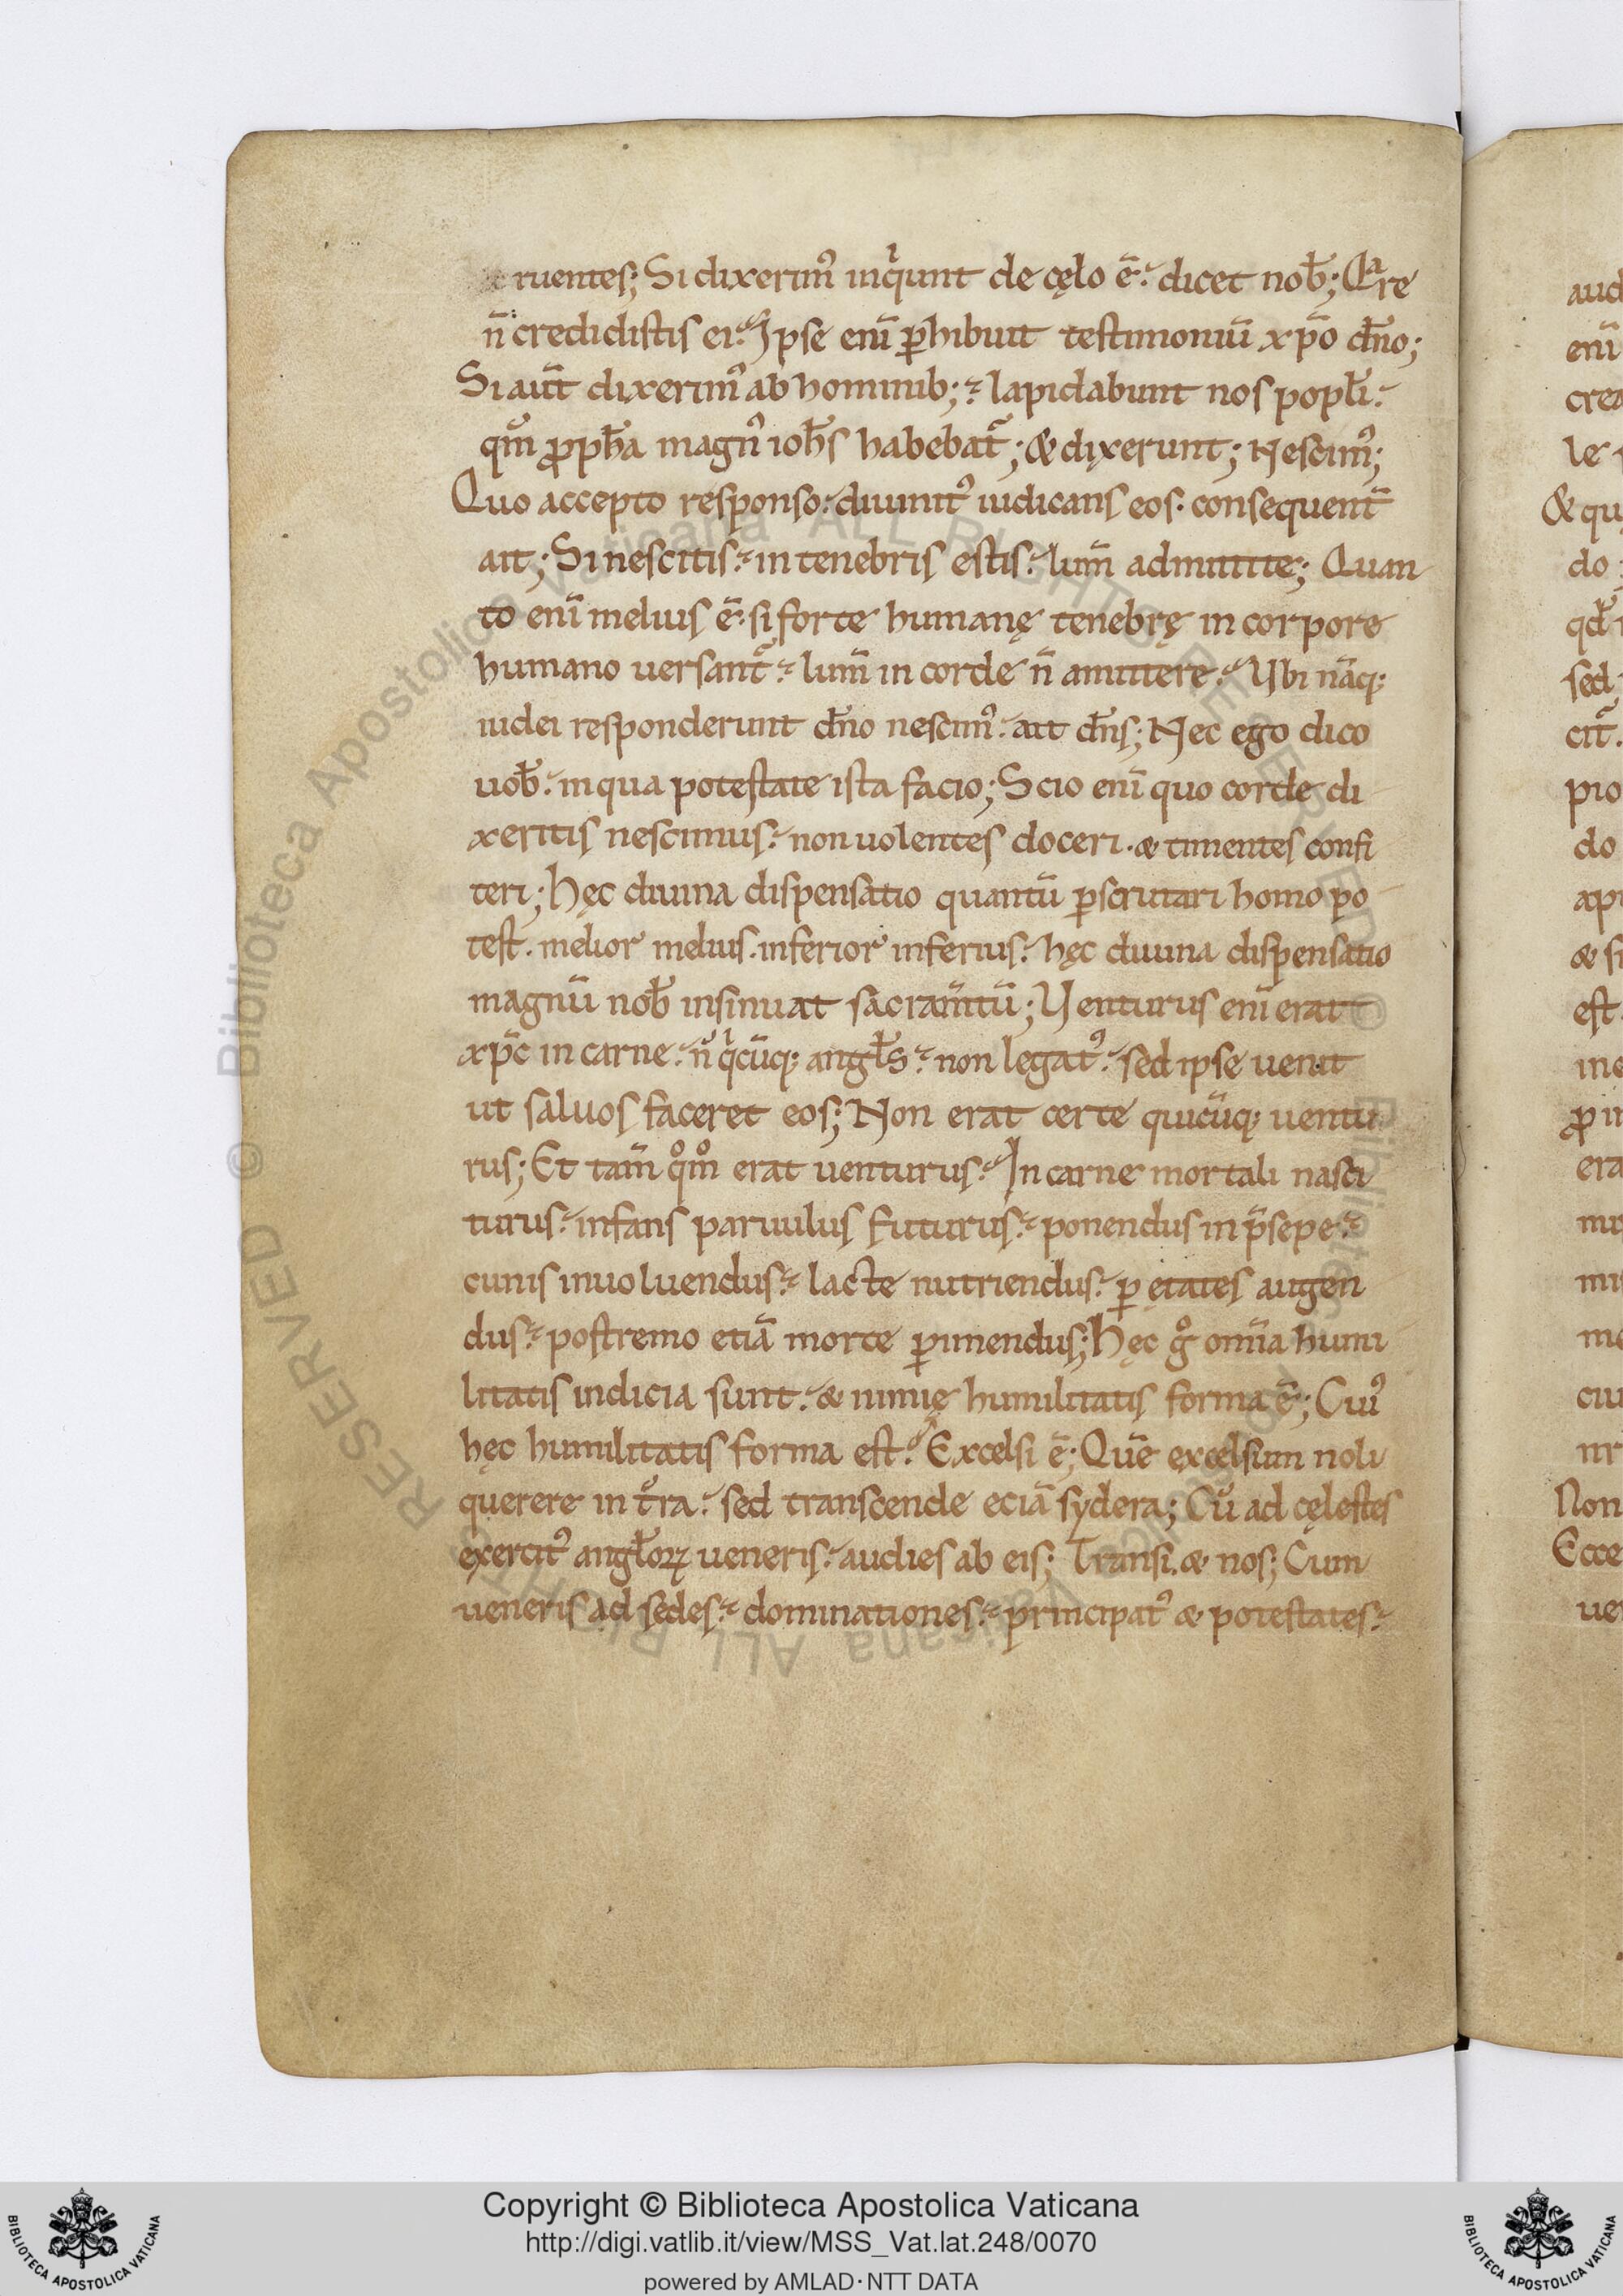 ruentes; Si dixerimꝰ inqͥunt de cęlo ē. dicet nob̄; Qᵃre
n̄ credidistis ei. Ipse enī ꝑhibuit testimoniū xp̄o dn̄o;
Si aūt dixerimꝰ ab hominib; lapidabunt nos popl̄i.
qm̄ ꝓph̄a magnꝰ ioh̄s habebat᷑; & dixerunt; Nescimꝰ;
Quo accepto responso. diuinitꝰ iudicans eos. consequent̄
ait; Si nescitis. in tenebris estis. lum̄ admittite; Quan
to enī melius ē. si forte humanę tenebrę in corpore
humano uersant᷑. lum̄ in corde n̄ amittere. Vbi nāq;
iudei responderunt dn̄o nescimꝰ. ait dn̄s; Nec ego dico
uob̄. in qua potestate ista facio; Scio enī quo corde di
xeritis nescimus. non uolentes doceri. & timentes confi
teri; Hęc diuina dispensatio quantū ꝑscrutari homo po
test. melior melius. inferior inferius. hęc diuina dispensatio
magnū nob̄ insinuat sācram̄tū; Venturus enī erat
xp̄c in carne. n̄ qͥcūq; angl̄s. non legatꝰ. sed ipse uenit
ut saluos faceret eos; Non erat certe quicūq; ventu
rus; Et tam̄ qᵒmᵒ erat uenturus. In carne mortali nasci
turus. infans paruulus futurus. ponendus in p̄sepe.
cunis inuoluendus. lacte nutriendus. ꝑ ętates augen
dus. postremo etiā morte ꝑimendus; Hęc gᵒ omīa humi
litatis indicia sunt. & nimię humilitatis forma ē; Cuiꝰ
hęc humilitatis forma est. Excelsi ē; Quē excelsum noli
querere in t̄ra. sed transcende eciā sydera; Cū ad cęlestes
exercitꝰ angl̄oꝝ ueneris. audies ab eis; Transi. & nos; Cum
ueneris ad sedes. dominationes. principatꝰ & potestates.
Copyright © Biblioteca Apostolica Vaticana
http://digi.vatlib.it/view/MSS_Vat.lat.248/0070
powered by AMLAD·NTT DATA